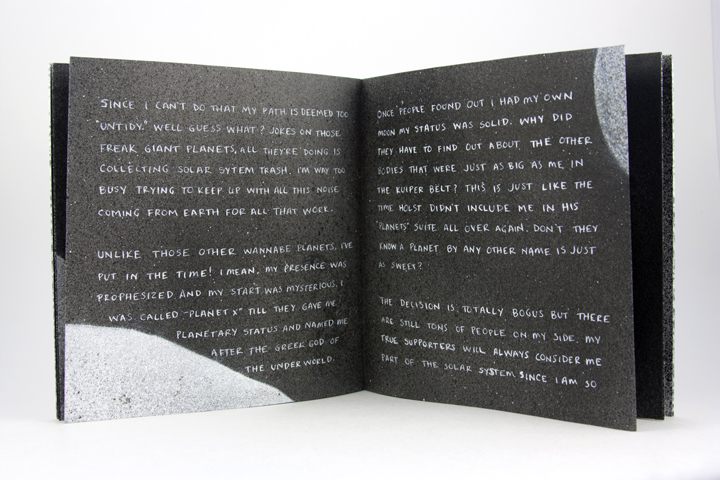 SINCE I CAN'T DO THAT MY PATH IS DEEMED TOO
"UNTIDY." WELL GUESS WHAT? JOKES ON THOSE
FREAK GIANT PLANETS, ALL THEY'RE DOING IS
COLLECTING SOLAR SYTEM TRASH. I'M WAY TOO
BUSY TRYING TO KEEP UP WITH ALL THIS NOISE
COMING FROM EARTH FOR ALL THAT WORK.
UNLIKE THOSE OTHER WANNABE PLANETS, I'VE
PUT IN THE TIME! I MEAN, MY PRESENCE WAS
PROPHESIZED AND MY START WAS MYSTERIOUS. I
WAS CALLED "PLANET X" TILL THEY GAVE ME
PLANETARY STATUS AND NAMED ME
AFTER THE GREEK GOD OF
THE UNDERWORLD.
ONCE PEOPLE FOUND OUT I HAD MY OWN
MOON MY STATUS WAS SOLID. WHY DID
THEY HAVE TO FIND OUT ABOUT THE OTHER
BODIES THAT WERE JUST AS BIG AS ME IN
THE KUIPER BELT? THIS IS JUST LIKE THE
TIME HOLST DIDN'T INCLUDE ME IN HIS
"PLANETS" SUITE ALL OVER AGAIN. DON'T THEY
KNOW A PLANET BY ANY OTHER NAME IS JUST
AS SWEET?
THE DECISION IS TOTALLY BOGUS BUT THERE
ARE STILL TONS OF PEOPLE ON MY SIDE. MY
TRUE SUPPORTERS WILL ALWAYS CONSIDER ME
PART OF THE SOLAR SYSTEM SINCE I AM SO